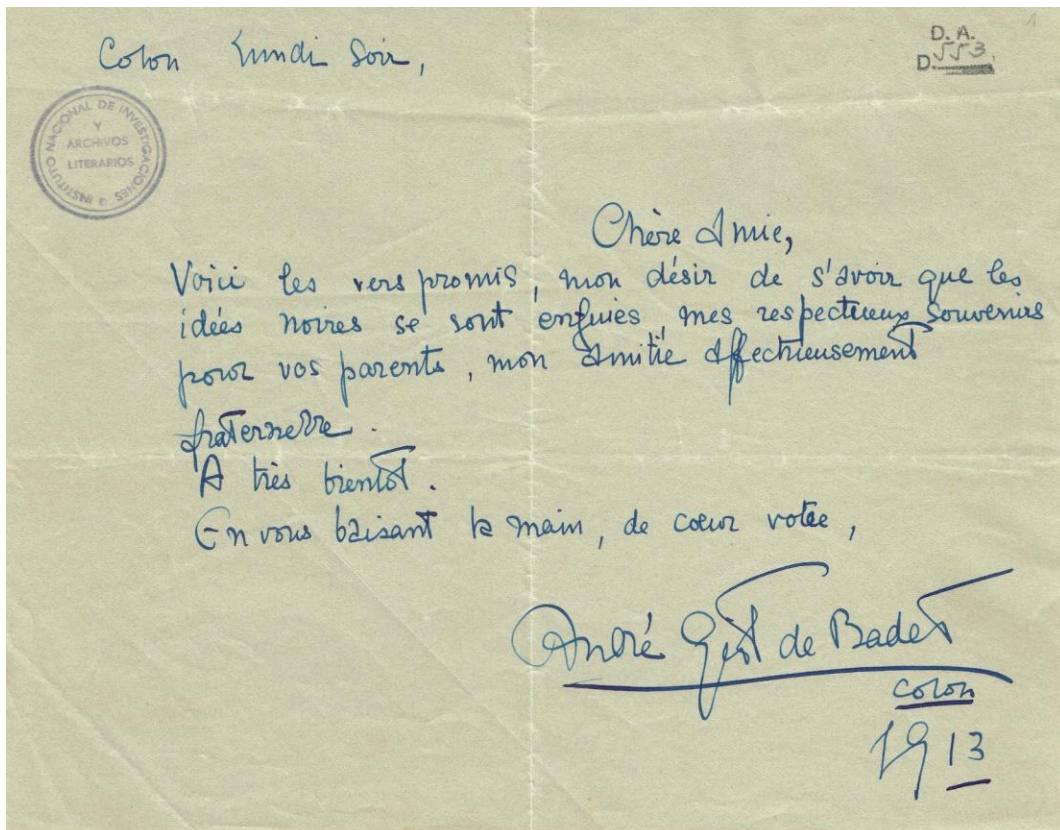 Colon Lundi Soir,
1
D. A.
D. 553.
INSTITUTO NACIONAL DE INVESTIGACIONES
Y
ARCHIVOS
LITERARIOS
Chère Amie,
Voici les vers promis, mon désir de s'avoir que les
idées noires se sont enfuies, mes respectueux souvenirs
pour vos parents, mon amitié affectueusement
fraternelle.
A très bientôt.
En vous baisant la main, de coeur votre,
André Gist de Badet
Colon
1913